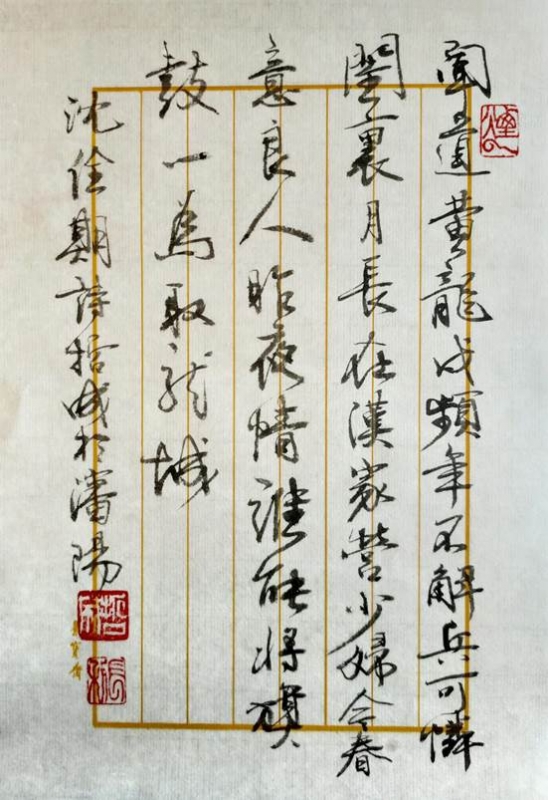 聞道黃龍戍頻年不解兵可憐
閨裏月長在漢家營少婦今春
意良人昨夜情誰能將旗
鼓一為取龍城
沈佺期詩哲成於瀋陽